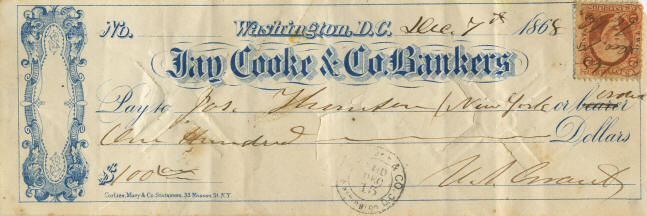 No. Washington, D.C. Dec. 7th 1868
Jay Cooke & Co. Bankers
Pay to Jas. Thomson (New York or bearer order
One Hundred Dollars
$100 00/100
U.S. Grant
Corlies, Macy & Co. Stationers, 33 Nassau St. N.Y.
& CO.
DEC
15